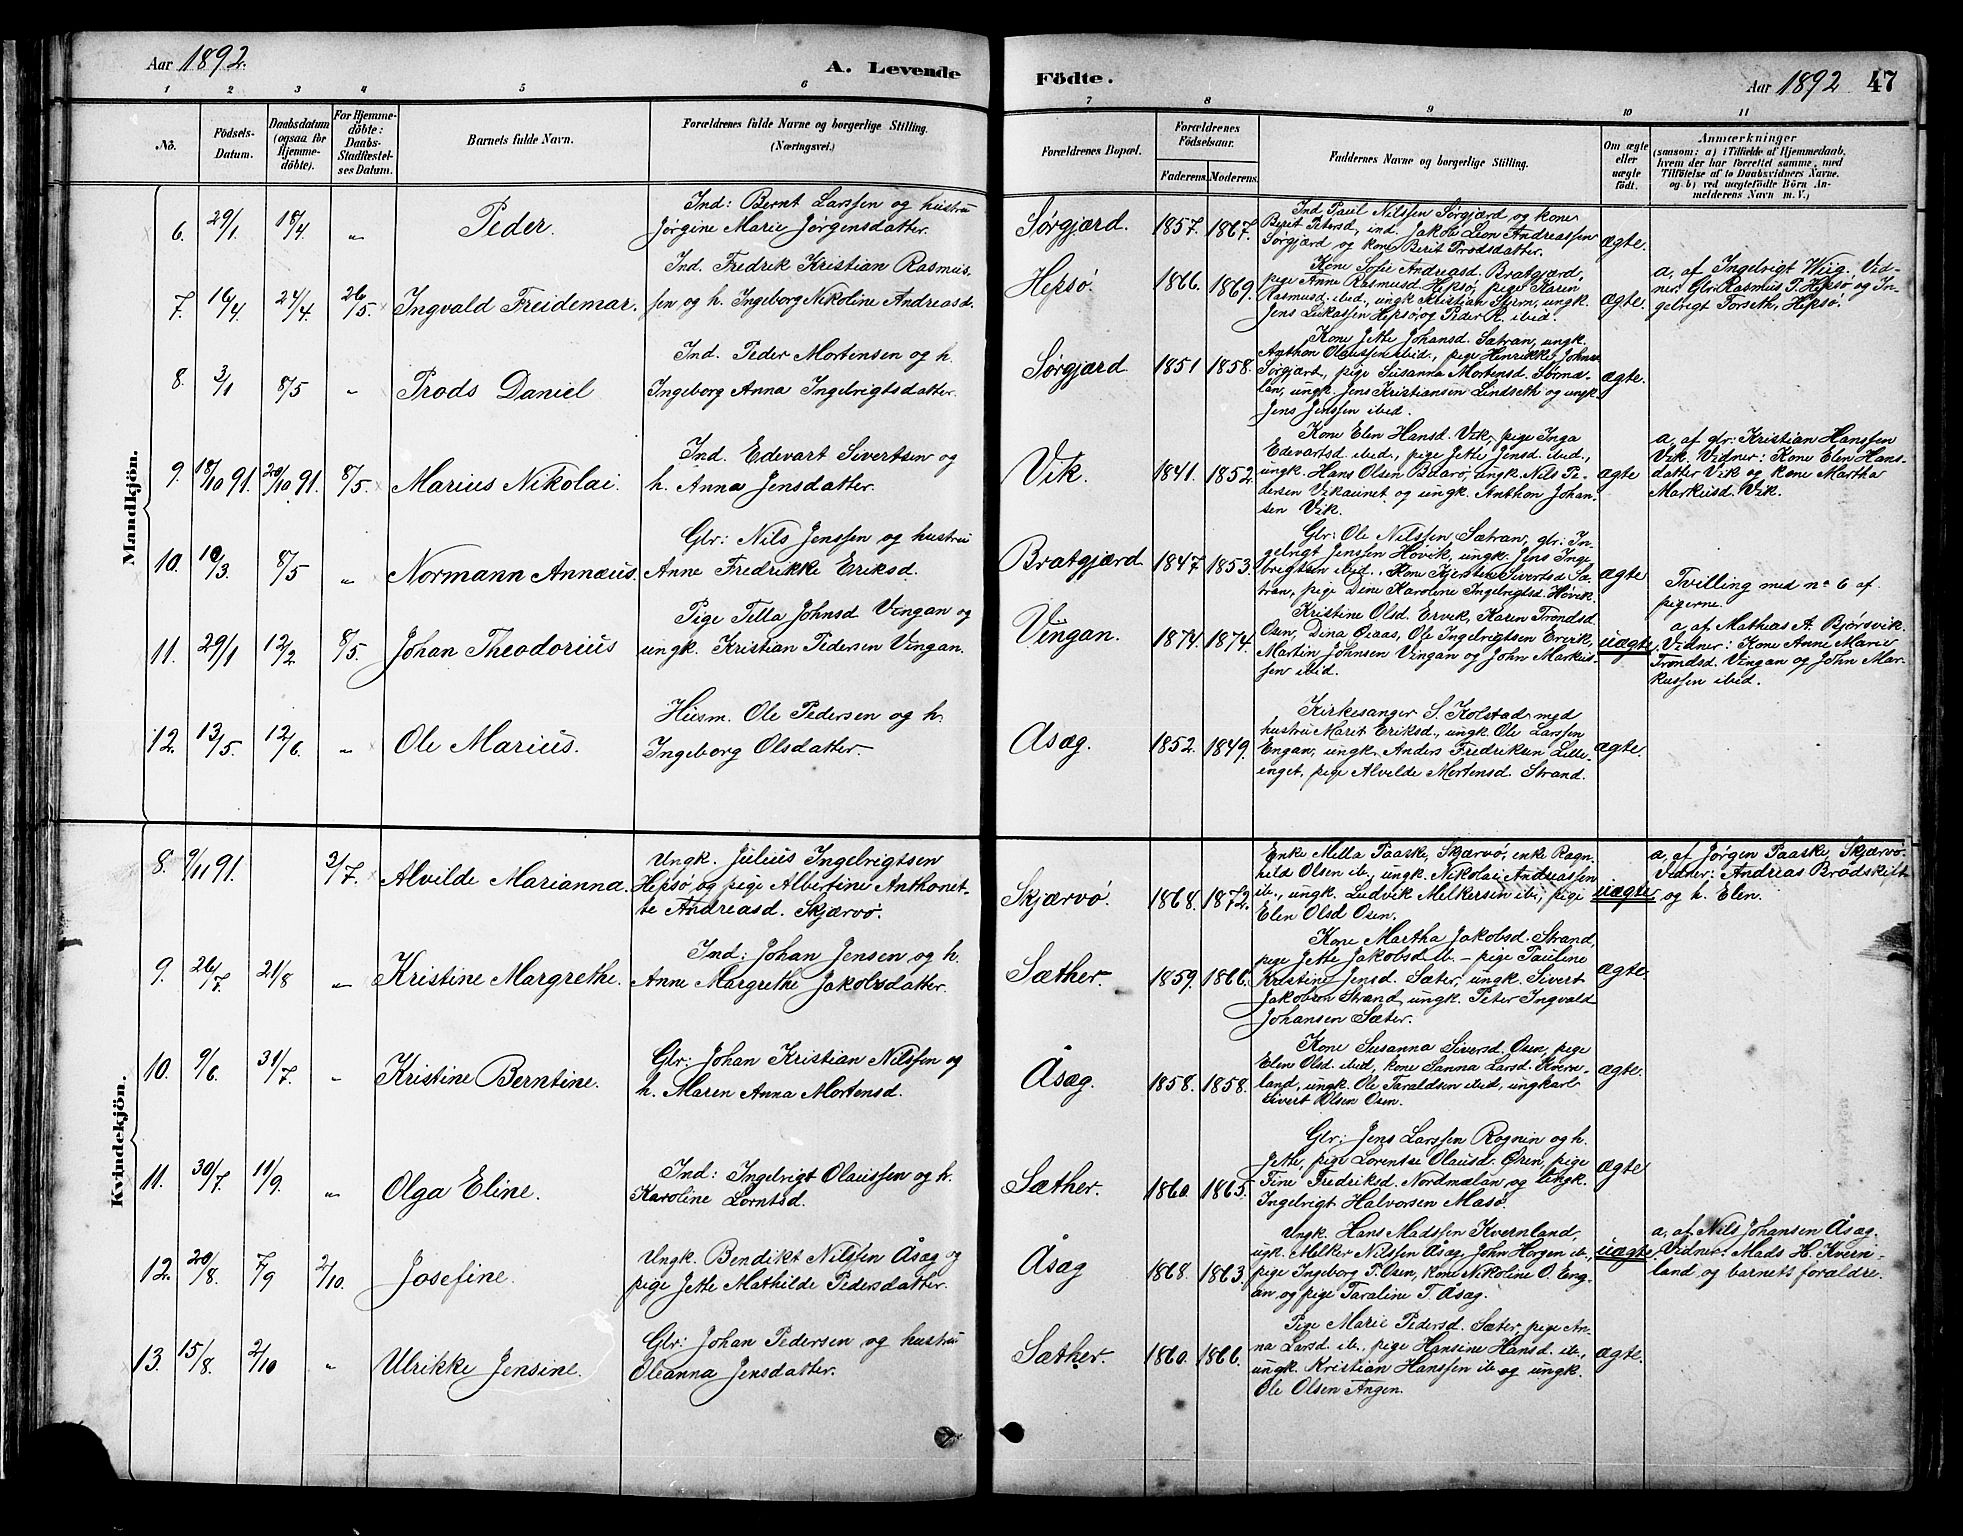 Aar 1892.
A. Levende
Födte.
Aar 1892
47
1 2 3 4 5 6
7 8 9 10 11
No.
Födsels-
Datum.
Daabsdatum
(ogsaa for
Hjemme-
döbte).
For Hjemme-
döbte:
Daabs-
Stadfæstel-
ses Datum.
Barnets fulde Navn.
Forældrenes fulde Navne og borgerlige Stilling.
(Næringsvei.)
Forældrenes Bopæl.
Forældrenes
Födselsaar.
Faderens. Moderens.
Faddernes Navne og borgerlige Stilling.
Om ægte
eller
uægte
födt.
Anmærkninger
(saasom: a) i Tilfælde af Hjemmedaab,
hvem der har forrettet samme, med
Tilföielse af to Daabsvidners Navne,
og b) ved uægtefödte Börn An-
melderens Navn m. V.)
Mandkjön.
6. 29/1 18/4 „ Peder.
Ind: Bernt Larssen og hustru
Jørgine Marie Jørgensdatter.
Sørgjærd. 1857. 1867.
Ind. Paul Nilssen Sørgjærd og kone
Berit Petersd, ind. Jakob Leon Andreassen
Sørgjærd og kone Berit Trodsdatter.
ægte.
7. 16/4 24/4 26/5 Ingvald Freidemar.
Ind. Fredrik Kristian Rasmus-
sen og h. Ingeborg Nikoline Andreasd.
Hepsø 1866. 1869.
Kone Sofie Andreasd. Bratgjærd,
pige Anne Rasmusd. Hepsø, pige Karen
Rasmusd. ibid., ungk Kristian Stern, ungk.
Jens Lukassen Hepsø, og Peder R. ibid.
ægte.
a, af Ingelrigt Wiig. Vid-
ner: Glr. Rasmus P. Hepsø og In-
gelrigt Forseth, Hepsø.
8. 3/1 8/5 „ Trods Daniel
Ind. Peder Mortensen og h.
Ingeborg Anna Ingelrigtsdatter.
Sørgjærd 1851 1858.
Kone Jette Johansd. Sætran, ungk.
Anthon Olaussen ibid., pige Henrikke Johns.
Sørgjærd, pige Susanna Mortensd. Sørmæ-
lan, ungk. Jens Kristiansen Lindseth og ungk.
Jens Jenssen ibid.
ægte.
9. 18/10 91. 20/10 91. 8/5. Marius Nikolai.
Ind. Edevart Sivertsen og
h. Anna Jensdatter.
Vik. 1841. 1852.
Kone Elen Hansd. Vik, pige Inga
Edevartsd. ibid., pige Jette Jensd. ibid.,
ungk. Hans Olsen Bessarø, ungk. Nils Pe-
dersen Vikaunet og ungk. Anthon Johan-
sen Vik.
ægte
a, af glr: Kristian Hanssen
Vik. Vidner: Kone Elen Hans-
datter Vik og kone Martha
Markusd. Vik.
10. 10/3. 8/5 „ Normann Annæus.
Glr: Nils Jenssen og hustru
Anne Fredrikke Eriksd.
Bratgjærd 1847. 1853.
Glr: Ole Nilssen Sætran, glr: In-
gelrigt Jenssen Hovik, ungk. Jens Inge-
brigtsen ibid., Kone Kjersten Sivertsd. Sæ-
tran, pige Dine Karoline Ingelrigtsd. Hovik.
ægte
11. 29/1 12/2 8/5. Johan Theodorius
Pige Tella Johnsd Vingan og
ungk. Kristian Pedersen Vingan.
Vingan. 1874. 1874.
Kristine Olsd. Ervik, Karen Trondsd.
Osen, Dina Øiaas, Ole Ingelrigtsen Ervik,
Martin Johnsen Vingan og John Markus-
sen ibid.
uægte.
Tvilling med no 6 af
pigerne.
a, af Mathias A. Bjørsvik.
Vidner: Kone Anne Marie
Trondsd. Vingan og John Mar-
kussen ibid.
12. 13/5. 12/6. „ Ole Marius.
Husm. Ole Pedersen og h.
Ingeborg Olsdatter
Åsæg. 1852. 1849.
Kirkesanger S. Kolstad med
hustru Marit Eriksd., ungk. Ole Larssen
Engan, ungk. Anders Fredriksen Lille-
enget, pige Alvilde Mortensd. Strand.
ægte.
Kvindekjön.
8. 9/11 91. 3/7. Alvilde Marianna.
Ungk. Julius Ingelrigtsen
Hepsø og pige Albertine Anthonet-
te Andreasd. Skjærvø.
Skjærvø. 1868. 1872.
Enke Milla Paaske, Skjærvø, enke Ragn-
hild Olsen ib., ungk. Nikolai Andreassen
ib., ungk. Ludvik Melkersen ib., pige
Elen Olsd Osen.
uægte
a, af Jørgen Paaske, Skjærvø.
Vidner: Andreas Brødskift
og h. Elen.
9. 26/7. 21/8 „ Kristine Margrethe.
Ind: Johan Jensen og h.
Anne Margrethe Jakobsdatter.
Sæther. 1859. 1866.
Kone Martha Jakobsd. Strand,
pige Jette Jakobsd. ib. - pige Pauline
Kristine Jensd. Sæter, ungk. Sivert
Jakobsen Strand, ungk. Peter Ingvald
Johansen Sæter.
ægte.
10. 9/6. 31/7. „ Kristine Berntine.
Glr: Johan Kristian Nilssen og
h. Maren Anna Mortensd.
Åsæg. 1858. 1858.
Kone Susanna Siversd. Osen, pige
Elen Olsd. ibid, kone Sanna Larsd. Kvern-
land, ungk. Ole Taraldsen ibid, ungkarl
Sivert Olsen Osen.
ægte.
11. 30/7. 11/9. „ Olga Eline.
Ind: Ingelrigt Olaussen og h.
Karoline Lorntsd.
Sæther. 1860. 1865.
Glr: Jens Larssen Rognin og h.
Jette, pige Lorentse Olausd. Osen, pige
Tine Fredriksd. Nordmælan og ungk.
Ingelrigt Halvorsen Masø.
ægte
12. 20/8. 7/9 2/10. Josefine.
Ungk. Bendikt Nilssen Åsæg og
pige Jette Mathilde Pedersdatter.
Åsæg 1868. 1863.
Ungk. Hans Madssen Kvernland,
ugk. Melker Nilssen Åsæg, John Horgen ib.,
pige Ingeborg P. Osen, kone Nikoline O. Eng-
an og pige Taraline T. Åsæg.
uægte.
a, af Nils Johansen Åsæg.
Vidner: Mads H. Kvern-
land og barnets forældre.
13. 15/8. 2/10 „ Ulrikke Jensine.
Glr: Johan Pedersen og hustru
Oleanna Jensdatter.
Sæther. 1860. 1866.
Pige Marie Pedersd. Sæter, pige An-
na Larsd. ib., pige Hansine Hansd. ib.,
ungk. Kristian Hanssen ib og ungk.
Ole Olsen Angen.
ægte.